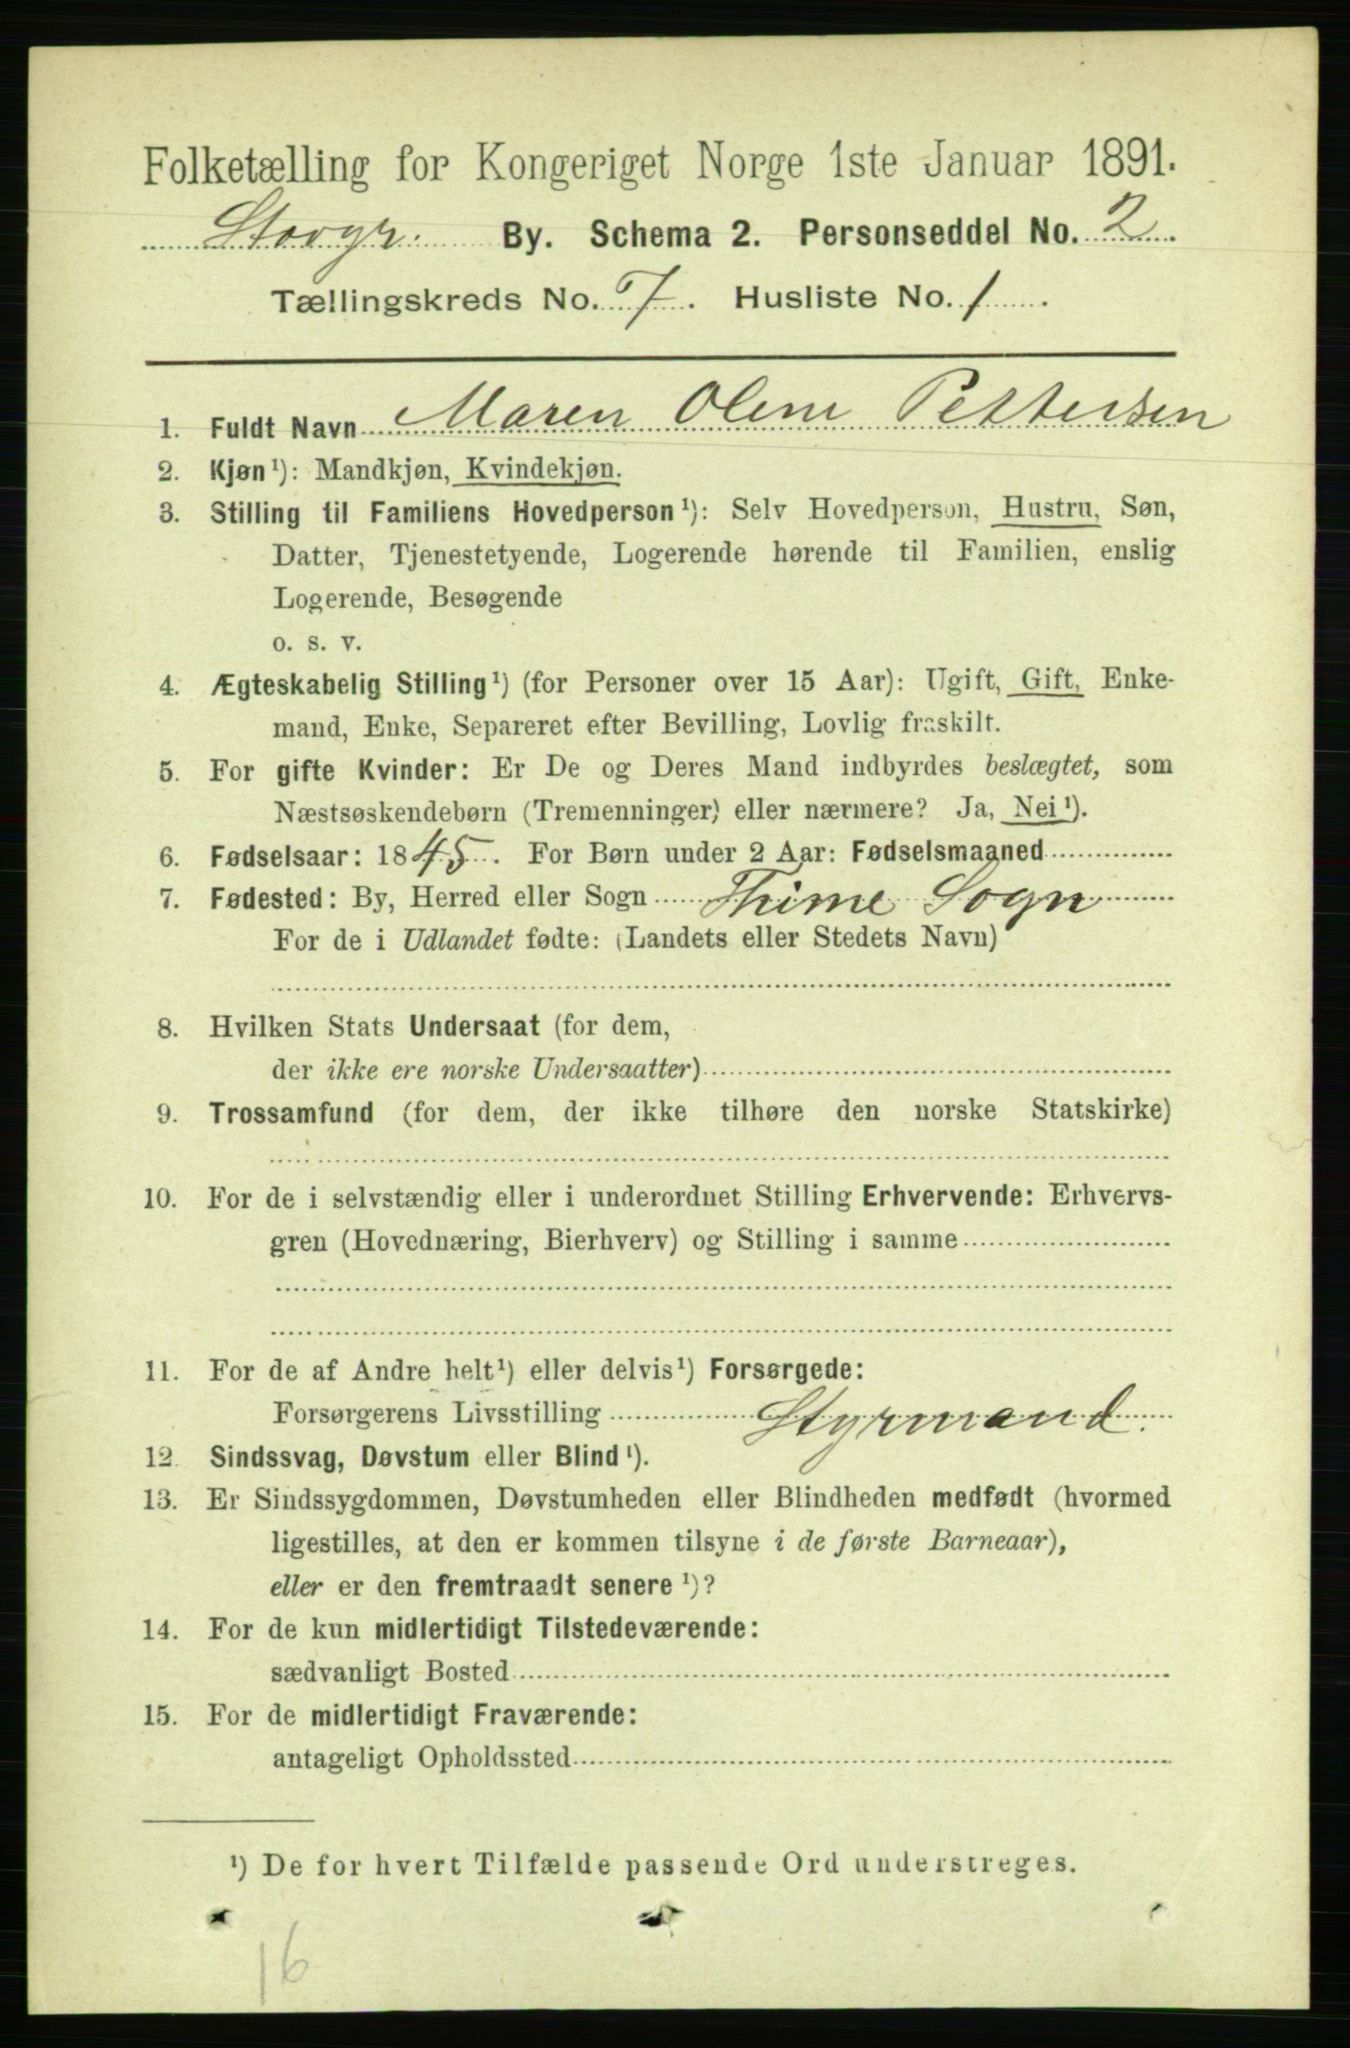 Folketælling for Kongeriget Norge 1ste Januar 1891.
Stavgr. By. Schema 2. Personseddel No. 2
Tællingskreds No. 7. Husliste No. 1.
1. Fuldt Navn Maren Olene Pettersen
2. Kjøn¹): Mandkjøn, Kvindekjøn.
3. Stilling til Familiens Hovedperson¹): Selv Hovedperson, Hustru, Søn,
Datter, Tjenestetyende, Logerende hørende til Familien, enslig
Logerende, Besøgende
o. s. v.
4. Ægteskabelig Stilling¹) (for Personer over 15 Aar): Ugift, Gift, Enke-
mand, Enke, Separeret efter Bevilling, Lovlig fraskilt.
5. For gifte Kvinder: Er De og Deres Mand indbyrdes beslægtet, som
Næstsøskendebørn (Tremenninger) eller nærmere? Ja, Nei¹).
6. Fødselsaar: 1845. For Børn under 2 Aar: Fødselsmaaned
7. Fødested: By, Herred eller Sogn Thime Sogn
For de i Udlandet fødte: (Landets eller Stedets Navn)
8. Hvilken Stats Undersaat (for dem,
der ikke ere norske Undersaatter)
9. Trossamfund (for dem, der ikke tilhøre den norske Statskirke)
10. For de i selvstændig eller i underordnet Stilling Erhvervende: Erhvervs-
gren (Hovednæring, Bierhverv) og Stilling i samme
11. For de af Andre helt¹) eller delvis¹) Forsørgede:
Forsørgerens Livsstilling Styrmand.
12. Sindssvag, Døvstum eller Blind¹).
13. Er Sindssygdommen, Døvstumheden eller Blindheden medfødt (hvormed
ligestilles, at den er kommen tilsyne i de første Barneaar),
eller er den fremtraadt senere¹)?
14. For de kun midlertidigt Tilstedeværende:
sædvanligt Bosted
15. For de midlertidigt Fraværende:
antageligt Opholdssted
¹) De for hvert Tilfælde passende Ord understreges.
16